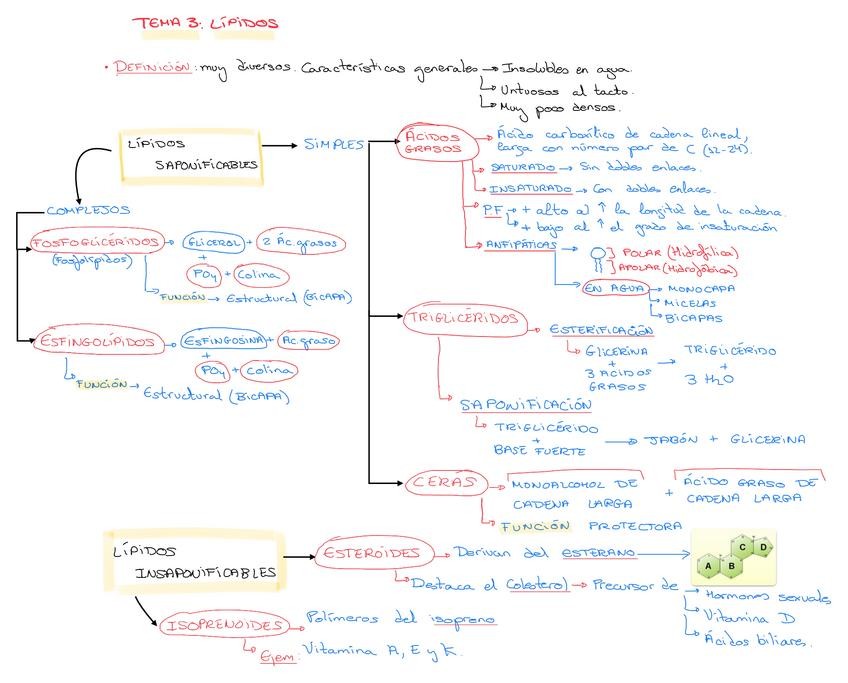 TEMA 3: LÍPIDOS
• DEFINICIÓN: muy diversos. Características generales → Insolubles en agua.
↳ Untuosos al tacto.
↳ Muy poco densos.
LÍPIDOS
SAPONIFICABLES
SIMPLES
ÁCIDOS
GRASOS
Ácido carboxílico de cadena lineal,
larga con número par de C (12-24).
SATURADO → Sin dobles enlaces.
INSATURADO → Con dobles enlaces.
P.F → + alto al ↑ la longitud de la cadena.
↳ + bajo al ↑ el grado de insaturación
ANFIPÁTICAS →
POLAR (Hidrofílica)
APOLAR (Hidrofóbica)
EN AGUA → MONOCAPA
↳ MICELAS
↳ BICAPAS
COMPLEJOS
FOSFOGLICÉRIDOS → GLICEROL + 2 Ác.grasos
(Fosfolípidos)
+
PO4 + Colina
FUNCIÓN → Estructural (BICAPA)
ESFINGOLÍPIDOS → ESFINGOSINA + Ac.graso
+
PO4 + Colina
FUNCIÓN → Estructural (BICAPA)
TRIGLICÉRIDOS
ESTERIFICACIÓN
↳ GLICERINA → TRIGLICÉRIDO
+ +
3 ACIDOS 3 H2O
GRASOS
SAPONIFICACIÓN
↳ TRIGLICÉRIDO
+ → JABÓN + GLICERINA
BASE FUERTE
CERÁS → MONOALCOHOL DE + ÁCIDO GRASO DE
CADENA LARGA CADENA LARGA
↳ FUNCIÓN PROTECTORA
LÍPIDOS
INSAPONIFICABLES
ESTEROIDES → Derivan del ESTERANO →
A B C D
↳ Destaca el Colesterol → Precursor de → Hormonas sexuales
↳ Vitamina D
↳ Ácidos biliares.
ISOPRENOIDES → Polímeros del isopreno
↳ Ejem: Vitamina A, E y K.